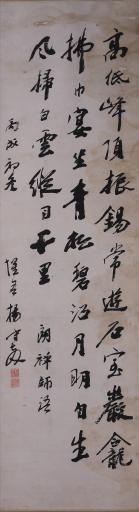 高低峰頂振錫常遊石室巖龕
拂巾宴坐青松碧沼月明自生
風掃白雲縱目千里 朗禪師語
楊守敬